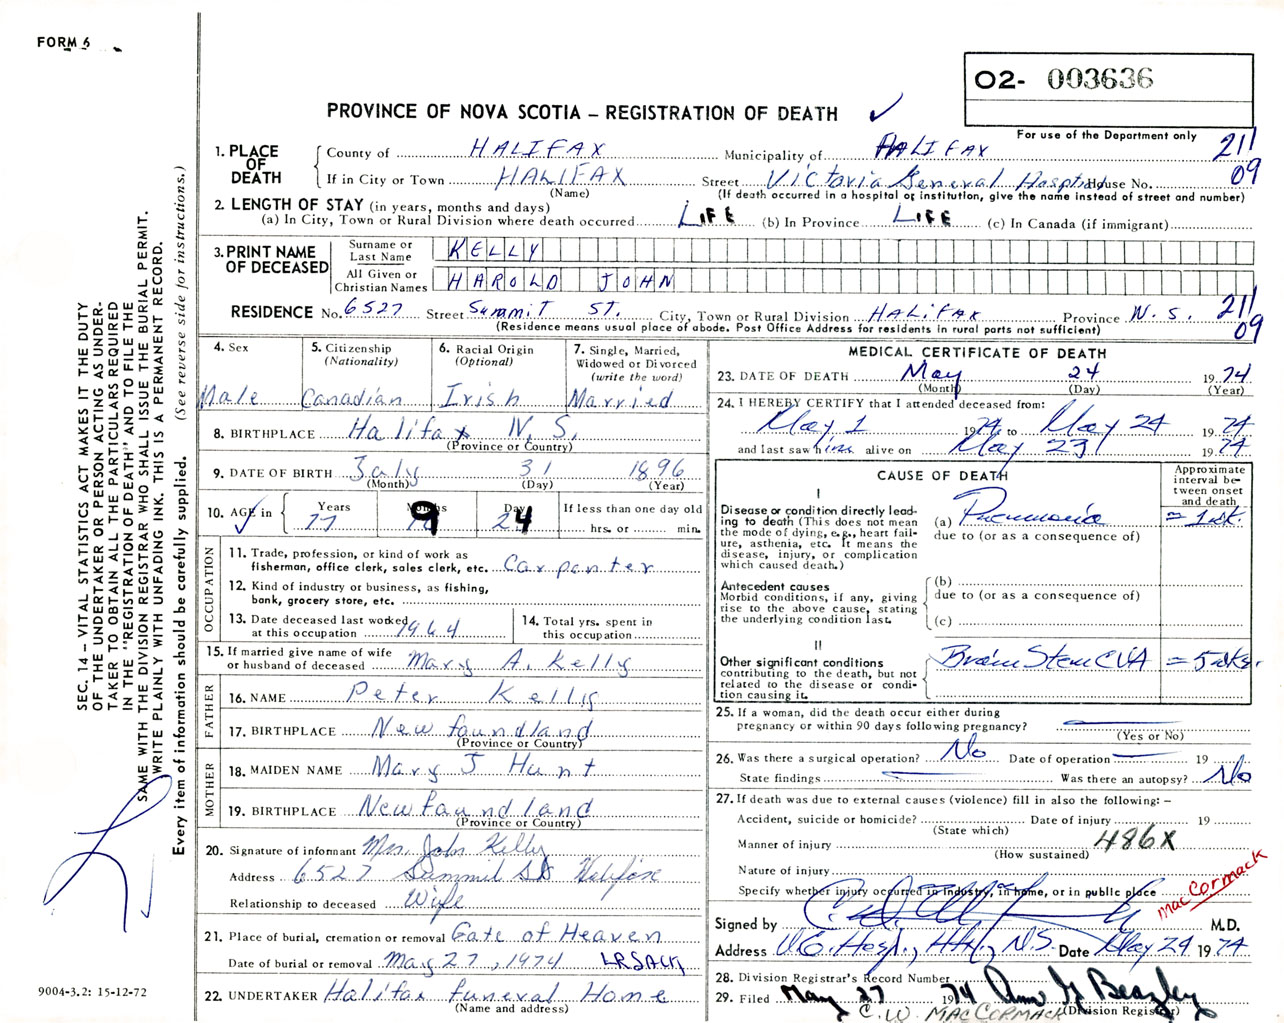 FORM 6
O2- 003636
PROVINCE OF NOVA SCOTIA – REGISTRATION OF DEATH
For use of the Department only
1. PLACE OF DEATH
County of HALIFAX Municipality of HALIFAX 211
If in City or Town HALIFAX Street Victoria General Hospital House No. 09
(Name) (If death occurred in a hospital or institution, give the name instead of street and number)
2. LENGTH OF STAY (in years, months and days)
(a) In City, Town or Rural Division where death occurred LIFE (b) In Province LIFE (c) In Canada (if immigrant)
3. PRINT NAME OF DECEASED
Surname or Last Name KELLY
All Given or Christian Names HAROLD JOHN
RESIDENCE No. 6527 Street Summit ST. City, Town or Rural Division HALIFAX Province N.S. 211
(Residence means usual place of abode. Post Office Address for residents in rural parts not sufficient) 09
4. Sex
Male
5. Citizenship
(Nationality)
Canadian
6. Racial Origin
(Optional)
Irish
7. Single, Married,
Widowed or Divorced
(write the word)
Married
8. BIRTHPLACE Halifax N.S.
(Province or Country)
9. DATE OF BIRTH July 31 1896
(Month) (Day) (Year)
10. AGE in Years Months Days If less than one day old
77 9 24 hrs. or min.
OCCUPATION
11. Trade, profession, or kind of work as
fisherman, office clerk, sales clerk, etc. Carpenter
12. Kind of industry or business, as fishing,
bank, grocery store, etc.
13. Date deceased last worked
at this occupation 1964
14. Total yrs. spent in
this occupation
15. If married give name of wife
or husband of deceased Mary A. Kelly
FATHER
16. NAME Peter Kelly
17. BIRTHPLACE Newfoundland
(Province or Country)
MOTHER
18. MAIDEN NAME Mary J Hunt
19. BIRTHPLACE Newfoundland
(Province or Country)
20. Signature of informant Mrs. John Kelly
Address 6527 Summit St Halifax
Relationship to deceased Wife
21. Place of burial, cremation or removal Gate of Heaven
Date of burial or removal May 27, 1974 LRSACK
22. UNDERTAKER Halifax Funeral Home
(Name and address)
MEDICAL CERTIFICATE OF DEATH
23. DATE OF DEATH May 24 1974
(Month) (Day) (Year)
24. I HEREBY CERTIFY that I attended deceased from:
May 1 1974 to May 24 1974
and last saw him alive on May 23 1974
CAUSE OF DEATH
Approximate
interval be-
tween onset
and death
I
Disease or condition directly lead-
ing to death (This does not mean
the mode of dying, e.g., heart fail-
ure, asthenia, etc. It means the
disease, injury, or complication
which caused death.)
(a) Pneumonia = 1 wk.
due to (or as a consequence of)
Antecedent causes
Morbid conditions, if any, giving
rise to the above cause, stating
the underlying condition last.
(b)
due to (or as a consequence of)
(c)
II
Other significant conditions
contributing to the death, but not
related to the disease or condi-
tion causing it.
Brain Stem CVA = 5 wks.
25. If a woman, did the death occur either during
pregnancy or within 90 days following pregnancy?
(Yes or No)
26. Was there a surgical operation? No Date of operation 19
State findings Was there an autopsy? No
27. If death was due to external causes (violence) fill in also the following: –
Accident, suicide or homicide? Date of injury 19
(State which)
Manner of injury 486X
(How sustained)
Nature of injury
Specify whether injury occurred in industry, in home, or in public place
MacCormack
Signed by M.D.
Address V.G. Hosp., Hfx., N.S. Date May 24 1974
28. Division Registrar's Record Number
29. Filed May 27 1974 Ann G Beazley
C.W. MACCORMACK (Division Registrar)
SEC. 14 – VITAL STATISTICS ACT MAKES IT THE DUTY
OF THE UNDERTAKER OR PERSON ACTING AS UNDER-
TAKER TO OBTAIN ALL THE PARTICULARS REQUIRED
IN THE "REGISTRATION OF DEATH" AND TO FILE THE
SAME WITH THE DIVISION REGISTRAR WHO SHALL ISSUE THE BURIAL PERMIT.
WRITE PLAINLY WITH UNFADING INK. THIS IS A PERMANENT RECORD.
Every item of information should be carefully supplied. (See reverse side for instructions.)
9004-3.2: 15-12-72